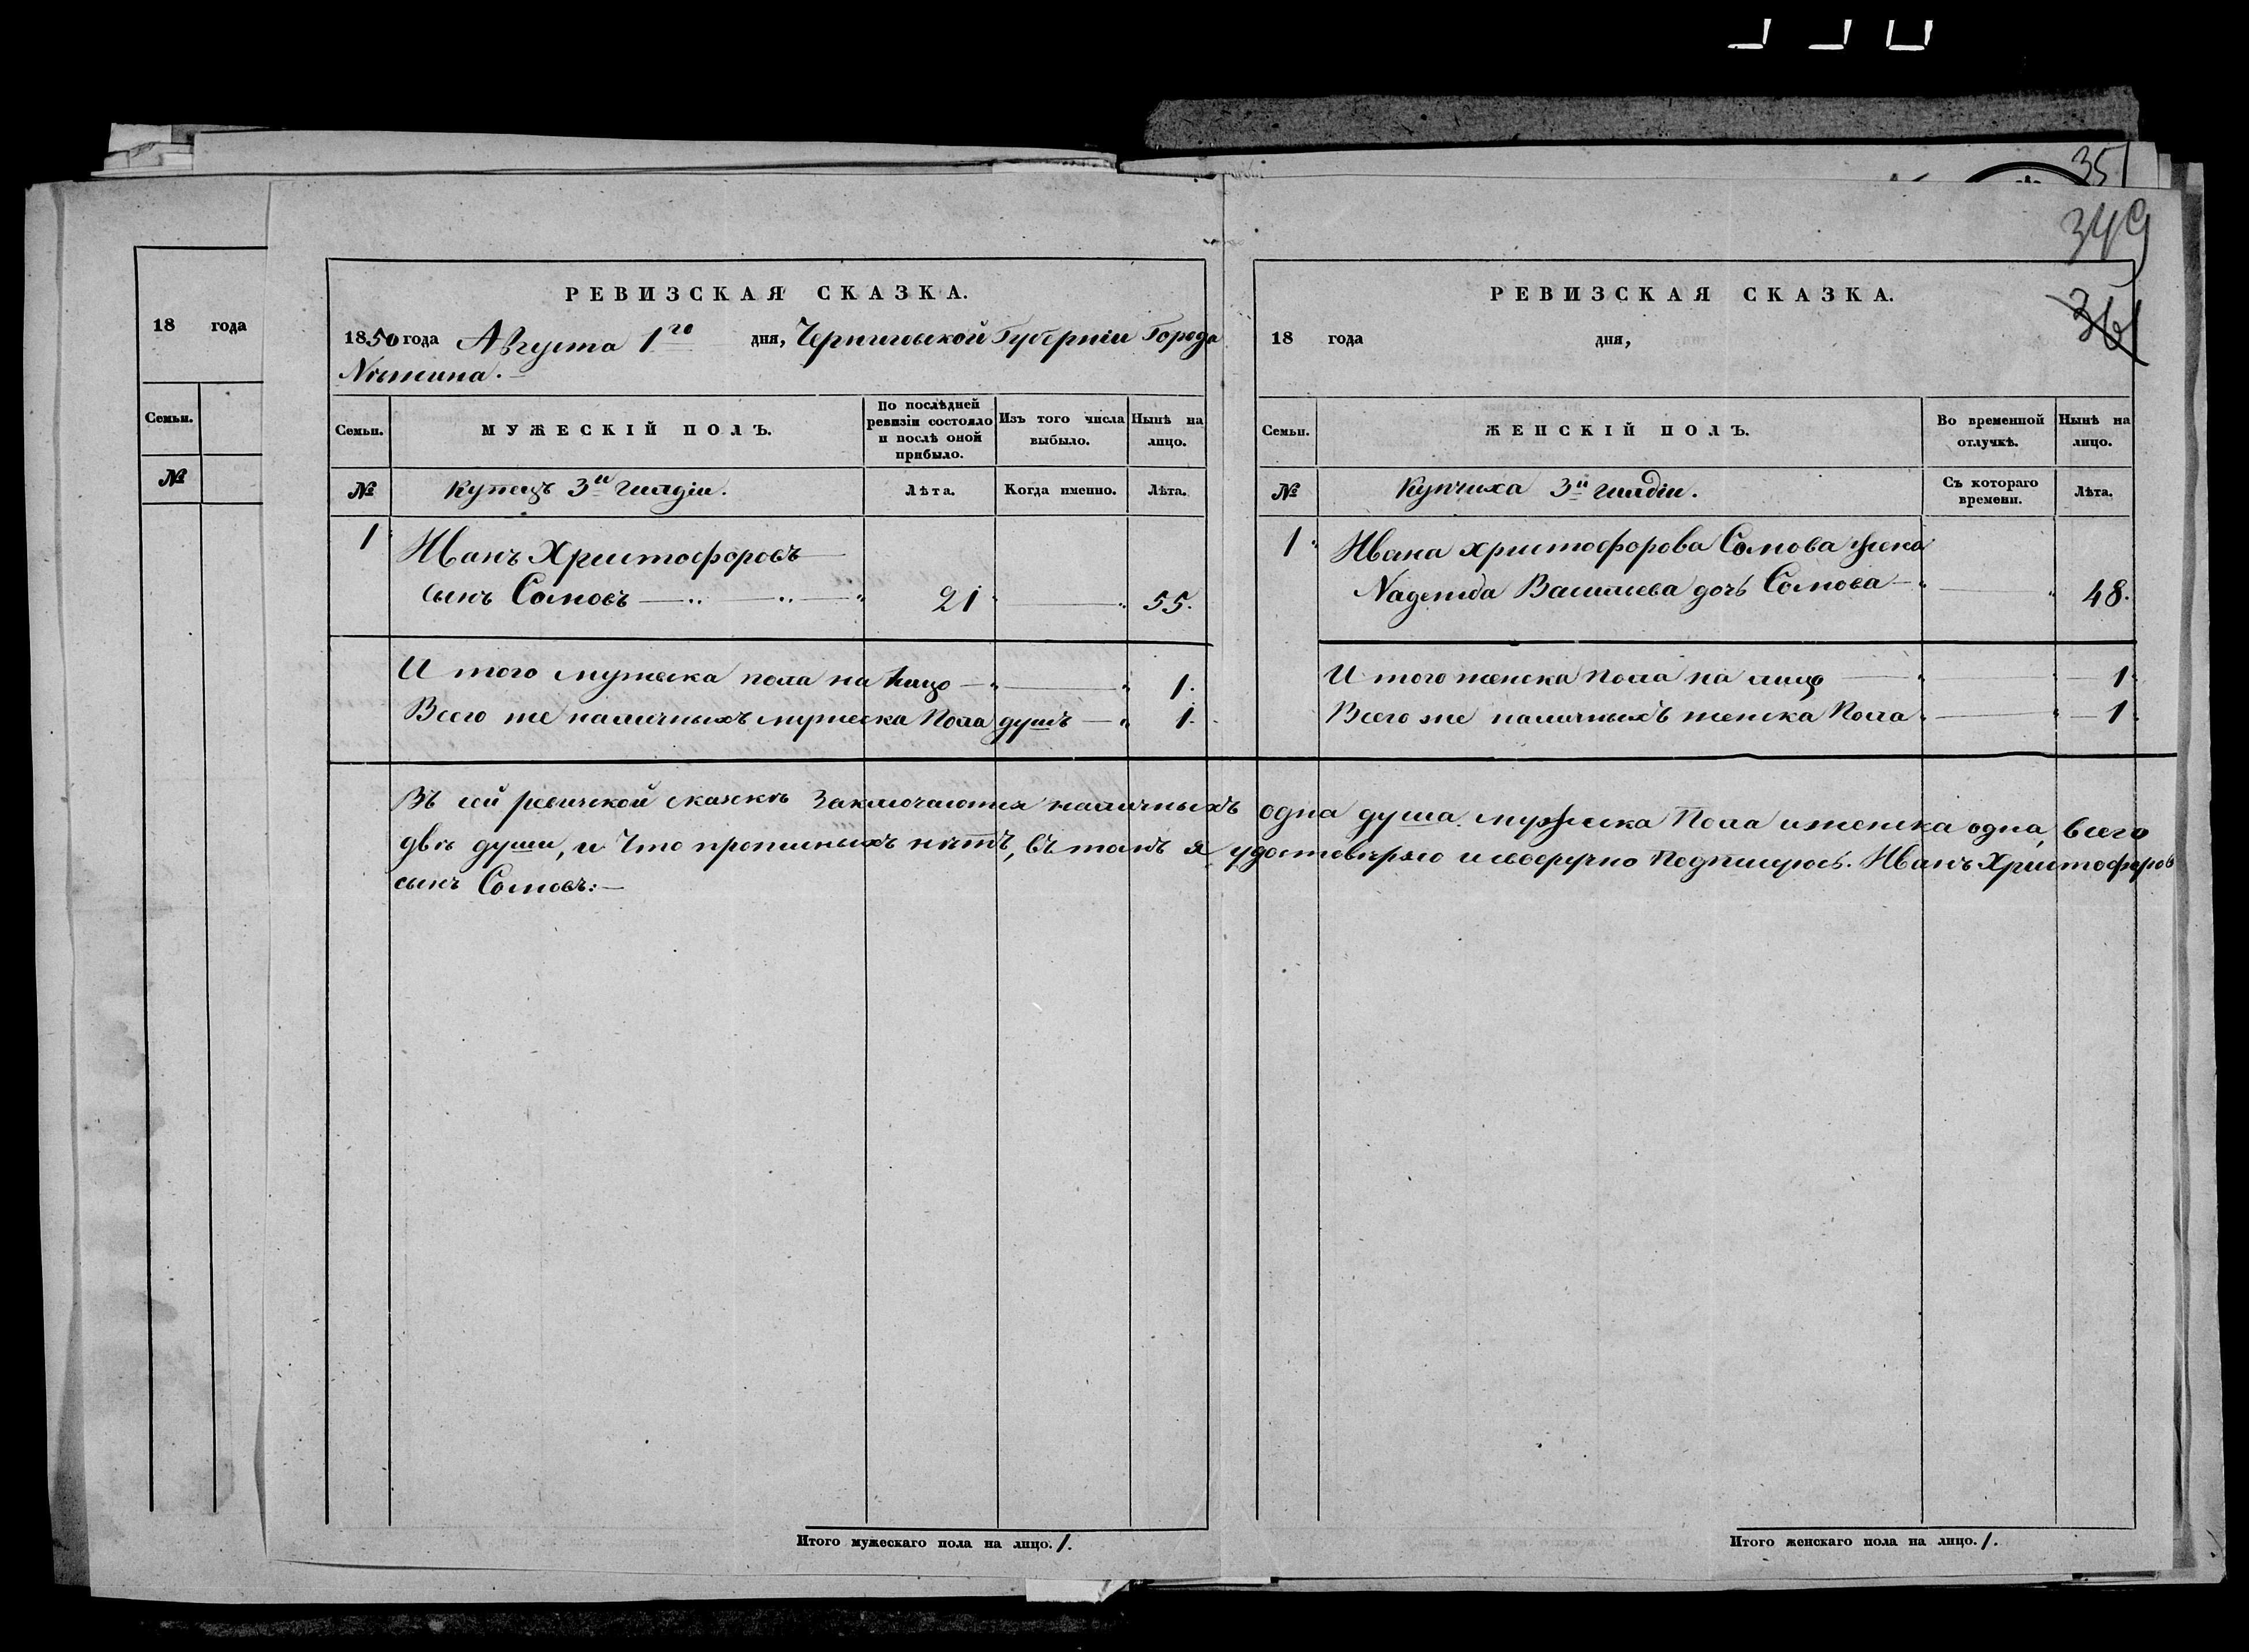 351
349
361
18 года
Семьи.
№
РЕВИЗСКАЯ СКАЗКА.
1850 года Августа 1го дня, Черниговской Губерніи Города
Нѣжина.
Семьи.
МУЖЕСКІЙ ПОЛЪ.
По послѣдней ревизіи состояло и послѣ оной прибыло.
Изъ того числа выбыло.
Нынѣ на лицо.
№
Купецъ 3й гилдіи.
Лѣта.
Когда именно.
Лѣта.
1
Иванъ Христофоровъ
сынъ Сомовъ 21 55.
И того мужеска пола на лицо 1.
Всего же наличныхъ мужеска Пола душъ 1.
РЕВИЗСКАЯ СКАЗКА.
18 года дня,
Семьи.
ЖЕНСКІЙ ПОЛЪ.
Во временной отлучкѣ.
Нынѣ на лицо.
№
Купчиха 3й гилдіи.
Съ котораго времени.
Лѣта.
1
Ивана христофорова Сомова жена
Надежда Васильева дочь Сомова 48.
И того женска пола на лицо 1
Всего же наличныхъ женска Пола 1
Въ сей ревизской сказкѣ Заключаются наличныхъ одна душа мужеска Пола и женска одна, всего
двѣ души, и Что прописныхъ нѣтъ, въ томъ я удостовѣряю и своеручно Подпишусь. Иванъ Христофоров
сынъ Сомовъ:—
Итого мужескаго пола на лицо. 1.
Итого женскаго пола на лицо. 1.